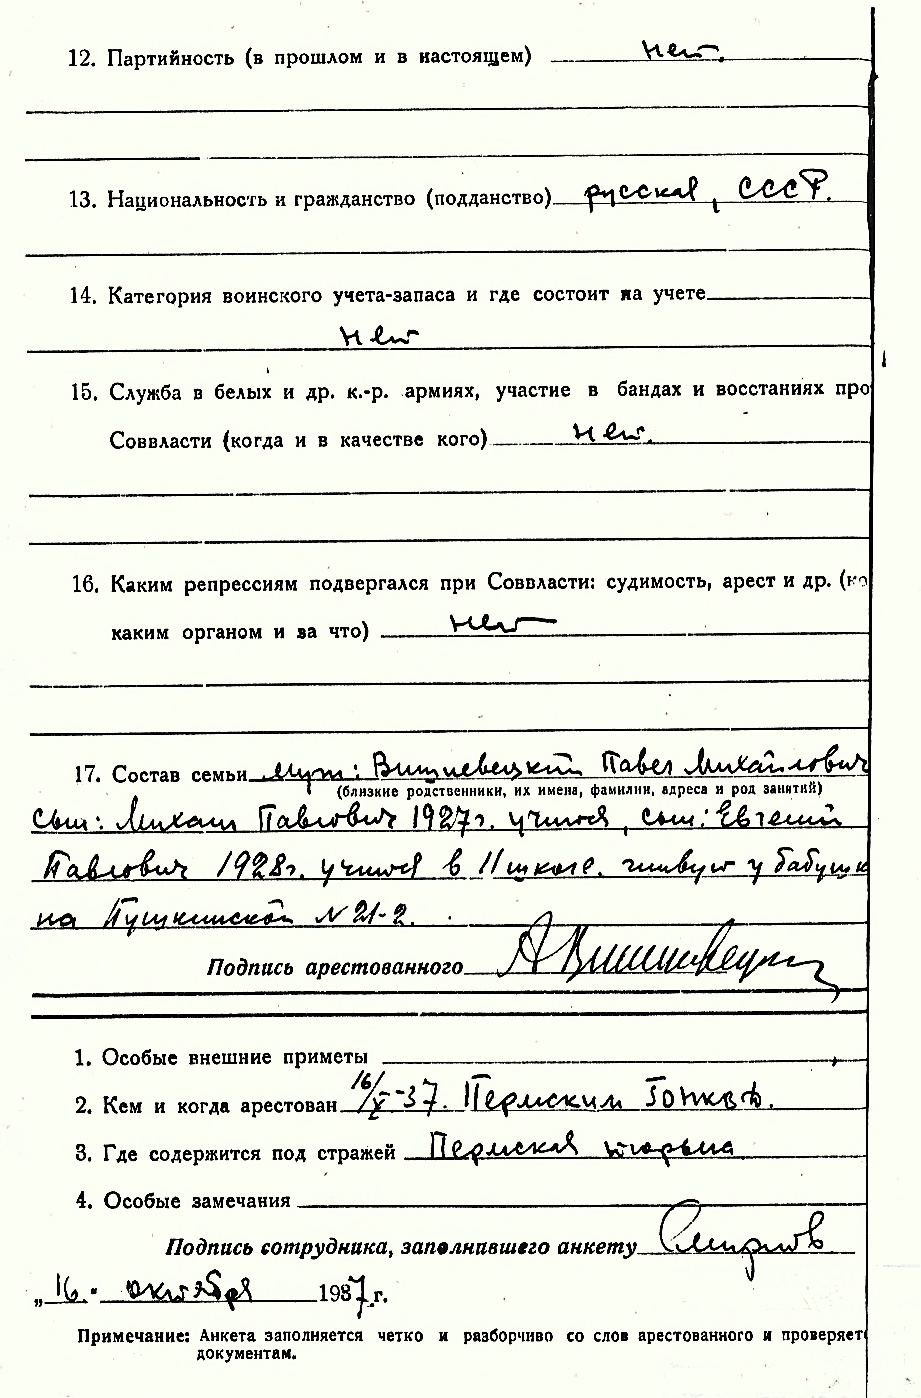 12. Партийность (в прошлом и в настоящем) нет.
13. Национальность и гражданство (подданство) русская, СССР.
14. Категория воинского учета-запаса и где состоит на учете
нет
15. Служба в белых и др. к.-р. армиях, участие в бандах и восстаниях про
Соввласти (когда и в качестве кого) нет.
16. Каким репрессиям подвергался при Соввласти: судимость, арест и др. (ко
каким органом и за что) нет
17. Состав семьи муж: Вишневецкий Павел Михайлович
(близкие родственники, их имена, фамилии, адреса и род занятий)
сын: Михаил Павлович 1927г. учится, сын: Евгений
Павлович 1928г. учится в 11 школе. живут у бабушк
на Пушкинской № 21-2.
Подпись арестованного АВишневецк
1. Особые внешние приметы
2. Кем и когда арестован 16/X-37. Пермским ГОНКВД.
3. Где содержится под стражей Пермская тюрьма
4. Особые замечания
Подпись сотрудника, заполнившего анкету Смирнов
„16." октября 1937 г.
Примечание: Анкета заполняется четко и разборчиво со слов арестованного и проверяет
документам.